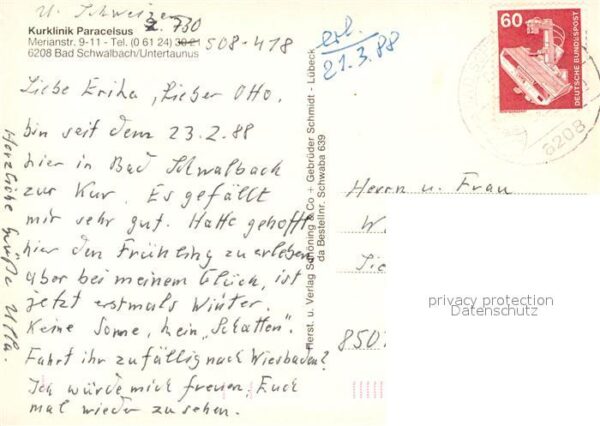 U. Schweizer
Z. 730
Kurklinik Paracelsus
Merianstr. 9-11 - Tel. (0 61 24) 3021 508-418
6208 Bad Schwalbach/Untertaunus
erh.
21.3.88
60
DEUTSCHE BUNDESPOST
6208
Liebe Erika, Lieber Otto,
bin seit dem 23.2.88
hier in Bad Schwalbach
zur Kur. Es gefällt
mir sehr gut. Hatte gehofft
hier den Frühling zu erleben
aber bei meinem Glück, ist
jetzt erstmals Winter.
Keine Sonne, kein "Schatten".
Fahrt ihr zufällig nach Wiesbaden?
Ich würde mich freuen, Euch
mal wieder zu sehen.
Herzliche Grüße Ulla.
Herst. u. Verlag Schöning & Co + Gebrüder Schmidt - Lübeck
da Bestellnr. Schwaba 639
Herrn u. Frau
850
privacy protection
Datenschutz